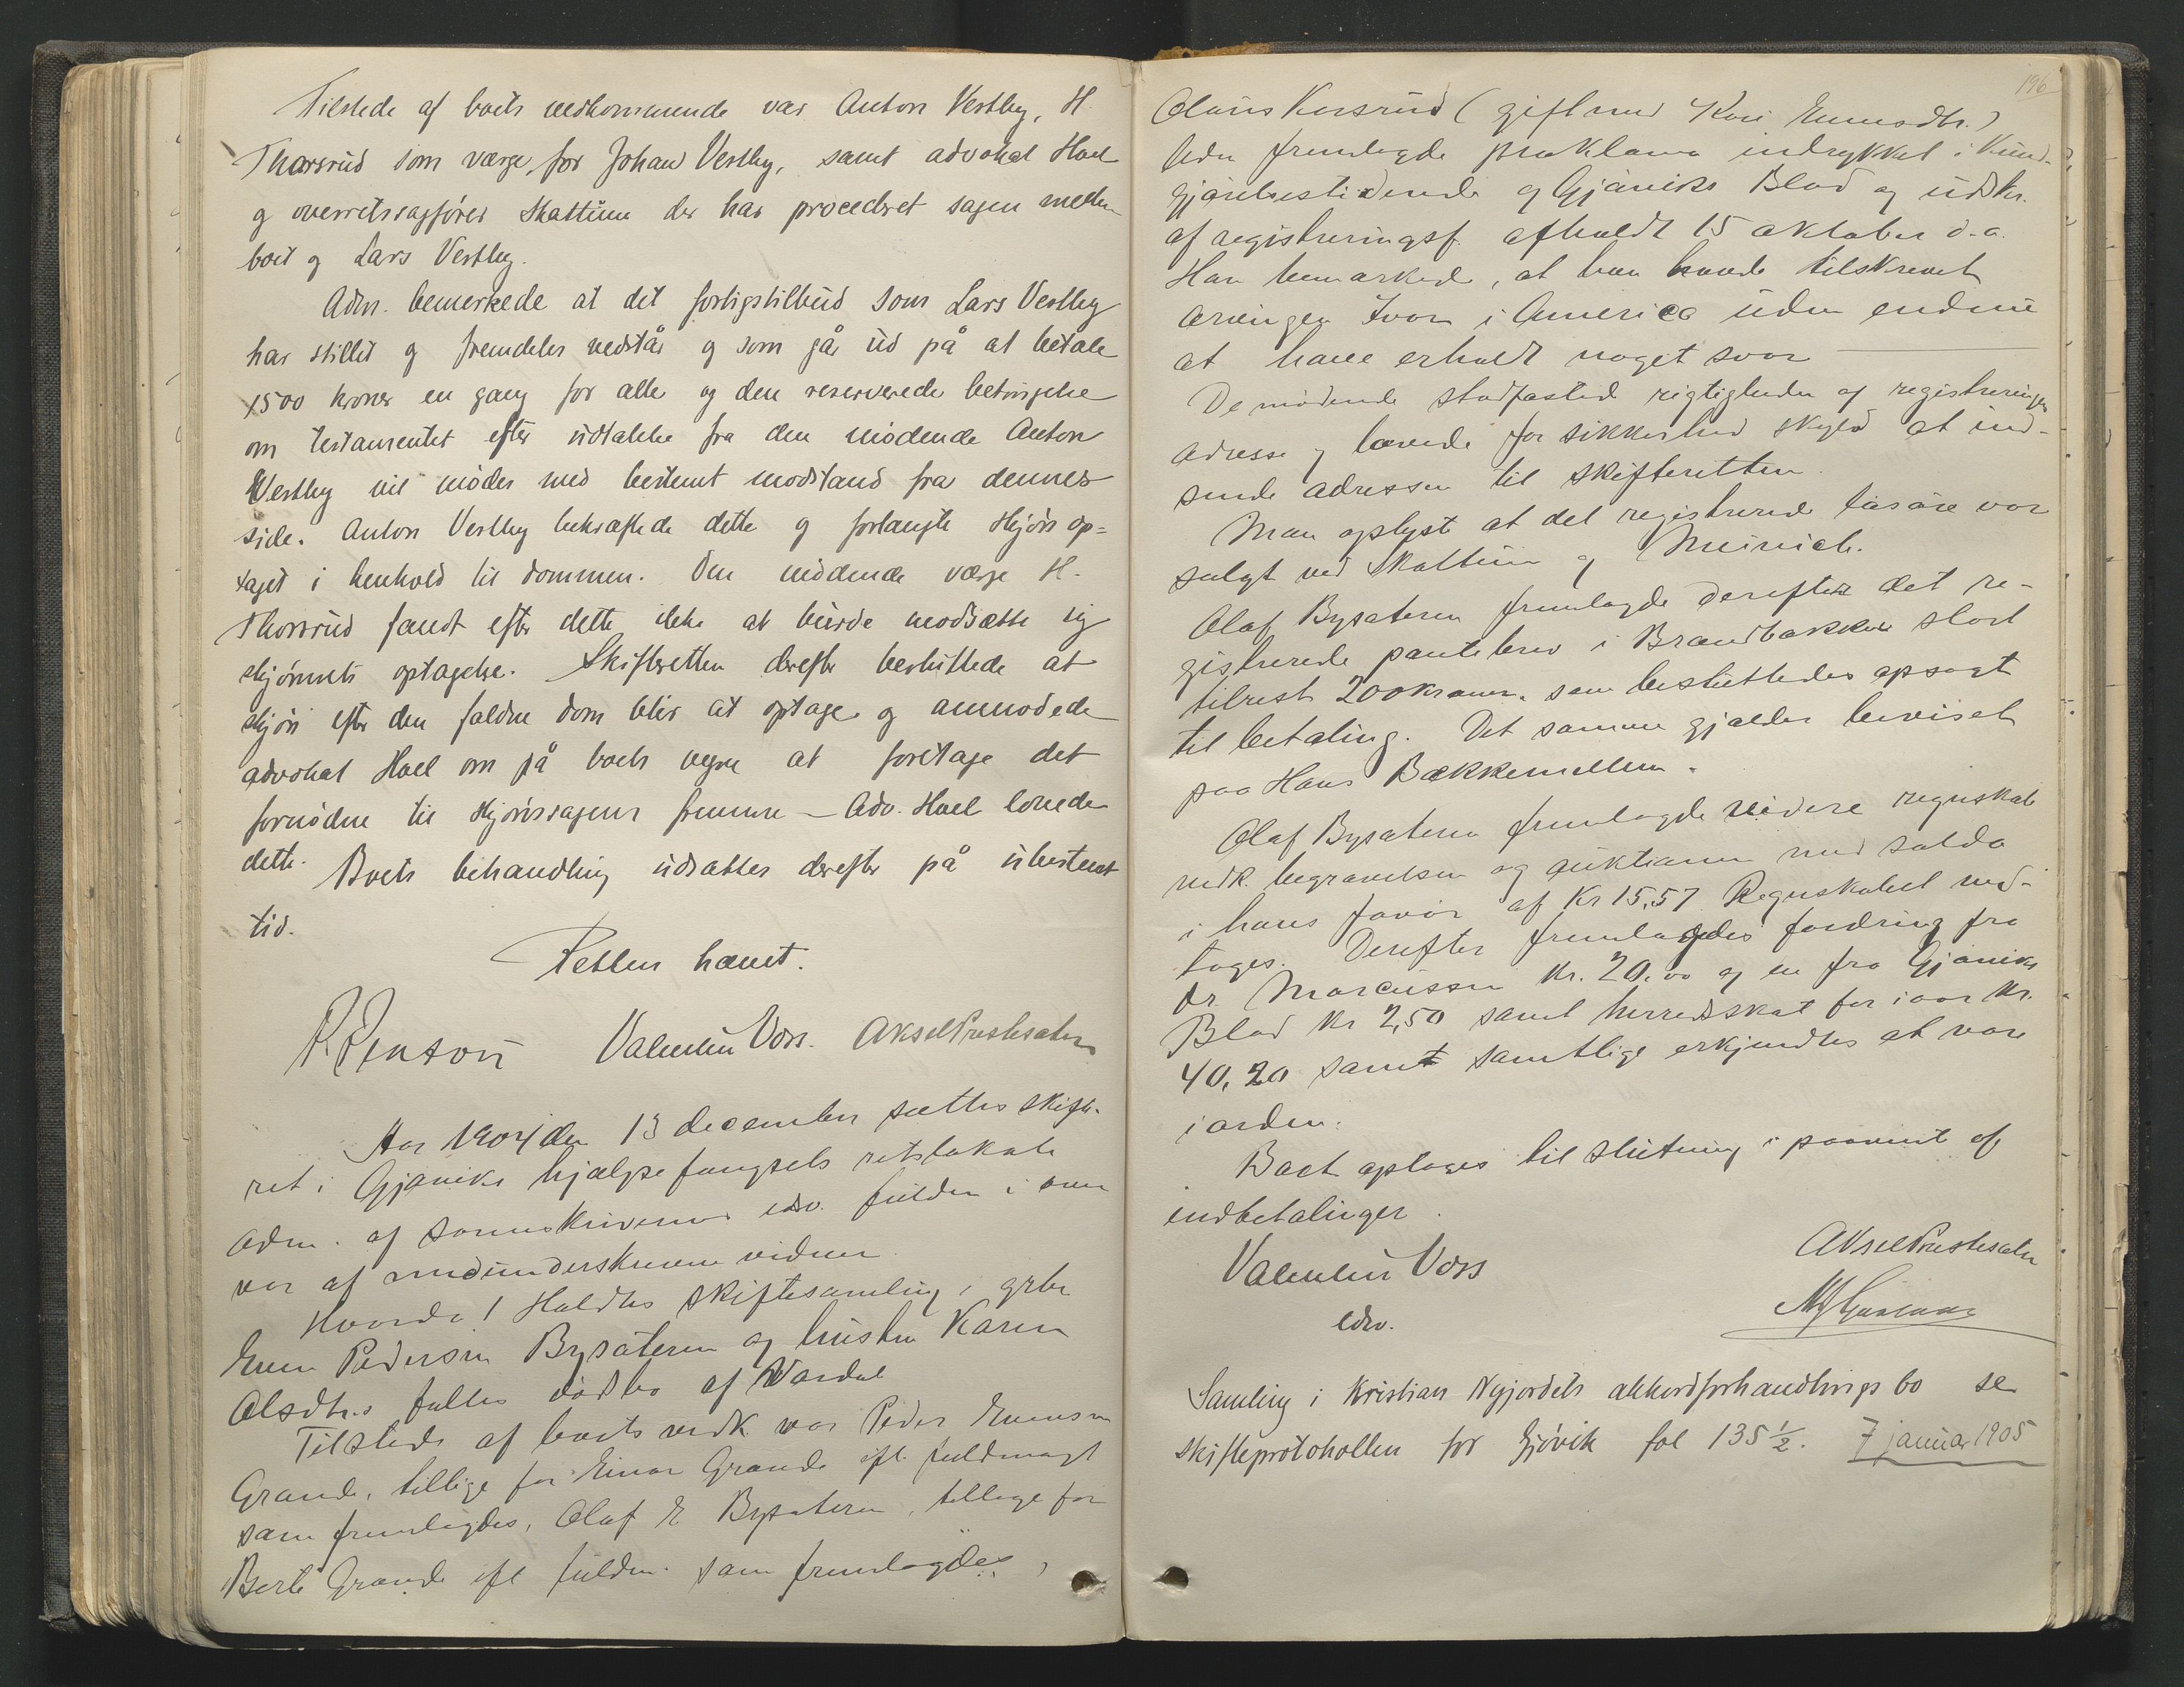 Tilstede af boets vedkommende var Anton Vestby, H.
Thorsrud som værge for Johan Vestby, samt advokat Hoel
og overretssagfører Skattum der har procederet sagen mellem
boet og Lars Vestby.
Adm. bemerkede at det forligstilbud som Lars Vestby
har stillet og fremdeles vedstår og som går ud på at betale
1500 kroner en gang for alle og den reserverede betingelse
om testamentet efter udtalelse fra den mødende Anton
Vestby vil mødes med bestemt modstand fra dennes
side. Anton Vestby bekræftede dette og forlangte skjøn op=
taget i henhold til dommen. Den mødende værge H.
Thorsrud fandt efter dette ikke at burde modsætte sig
skjønnets optagelse. Skifteretten derefter besluttede at
skjøn efter den faldne dom blir at optage og anmodede
advokat Hoel om på boets vegne at foretage det
fornødne til skjønssagens fremme – Adv. Hoel lovede
dette.
Boets behandling udsattes derefter på ubestemt
tid.
Retten hævet.
Valentin Voss. Aksel Præstesæter
Aar 1904 den 13 december sattes skifte-
ret i Gjøviks hjælpefængsels retslokale
adm. af sorenskriverens edsv. fuldm. i over
vær af medunderskrevne vidner
Hvorda! Holdtes skiftesamling i gbr
Even Pedersen Bysæteren og hustru Karen
Olsdtr.s fælles dødsbo af Vardal
Tilstede af boets vedk var Peder Evensen
Grande, tillige for Einar Grande efl. fuldmagt
som fremlagdes, Olaf E Bysæteren, tillige for
Berte Grande efl fuldm. som fremlagdes,
196
Olaus Korsrud (gift med Kari Evensdtr.)
Adm fremlagde proklama indrykket i Kund-
gjørelsestidende og Gjøviks Blad og udskr.
af registreringsf. afholdt 15 oktober d.a.
Han bemærked, at han havde tilskrevet
arvingen Ivar i America uden endnu
at have erholdt noget svar
De mødende stadfæsted rigtigheden af registreringens
adresse og lovede for sikkerhed skyld at ind-
sende adressen til skifteretten.
Man oplyst at det registrerede løsøre var
solgt ved Skattum og Meinich.
Olaf Bysæteren fremlagde derefter det re-
gistrerede pantebrev i Brandbakken stort
tilrest 200 kroner. som besluttedes opsagt
til betaling. Det samme gjælder beviset
paa Hans Bækkemellem.
Olaf Bysæteren fremlagde videre regnskab
vedk. begravelsen og auktionen med saldo
i hans favør af Kr 15,57 Regnskabet ved-
toges. Derefter fremlagdes fordring fra
dr. Marcussen Kr. 20.00 og en fra Gjøviks
Blad Kr 2,50 samt herredskat for iaar Kr.
40,20 samt samtlige erkjendtes at være
i orden.
Boet optages til slutning i paavente af
indbetalinger.
Valentin Voss
edsv.
Aksel Præstesæter
Samling i Kristian Nyjordets akkordforhandlings bo se
skifteprotokollen for Gjøvik fol 135 ½. 7 januar 1905